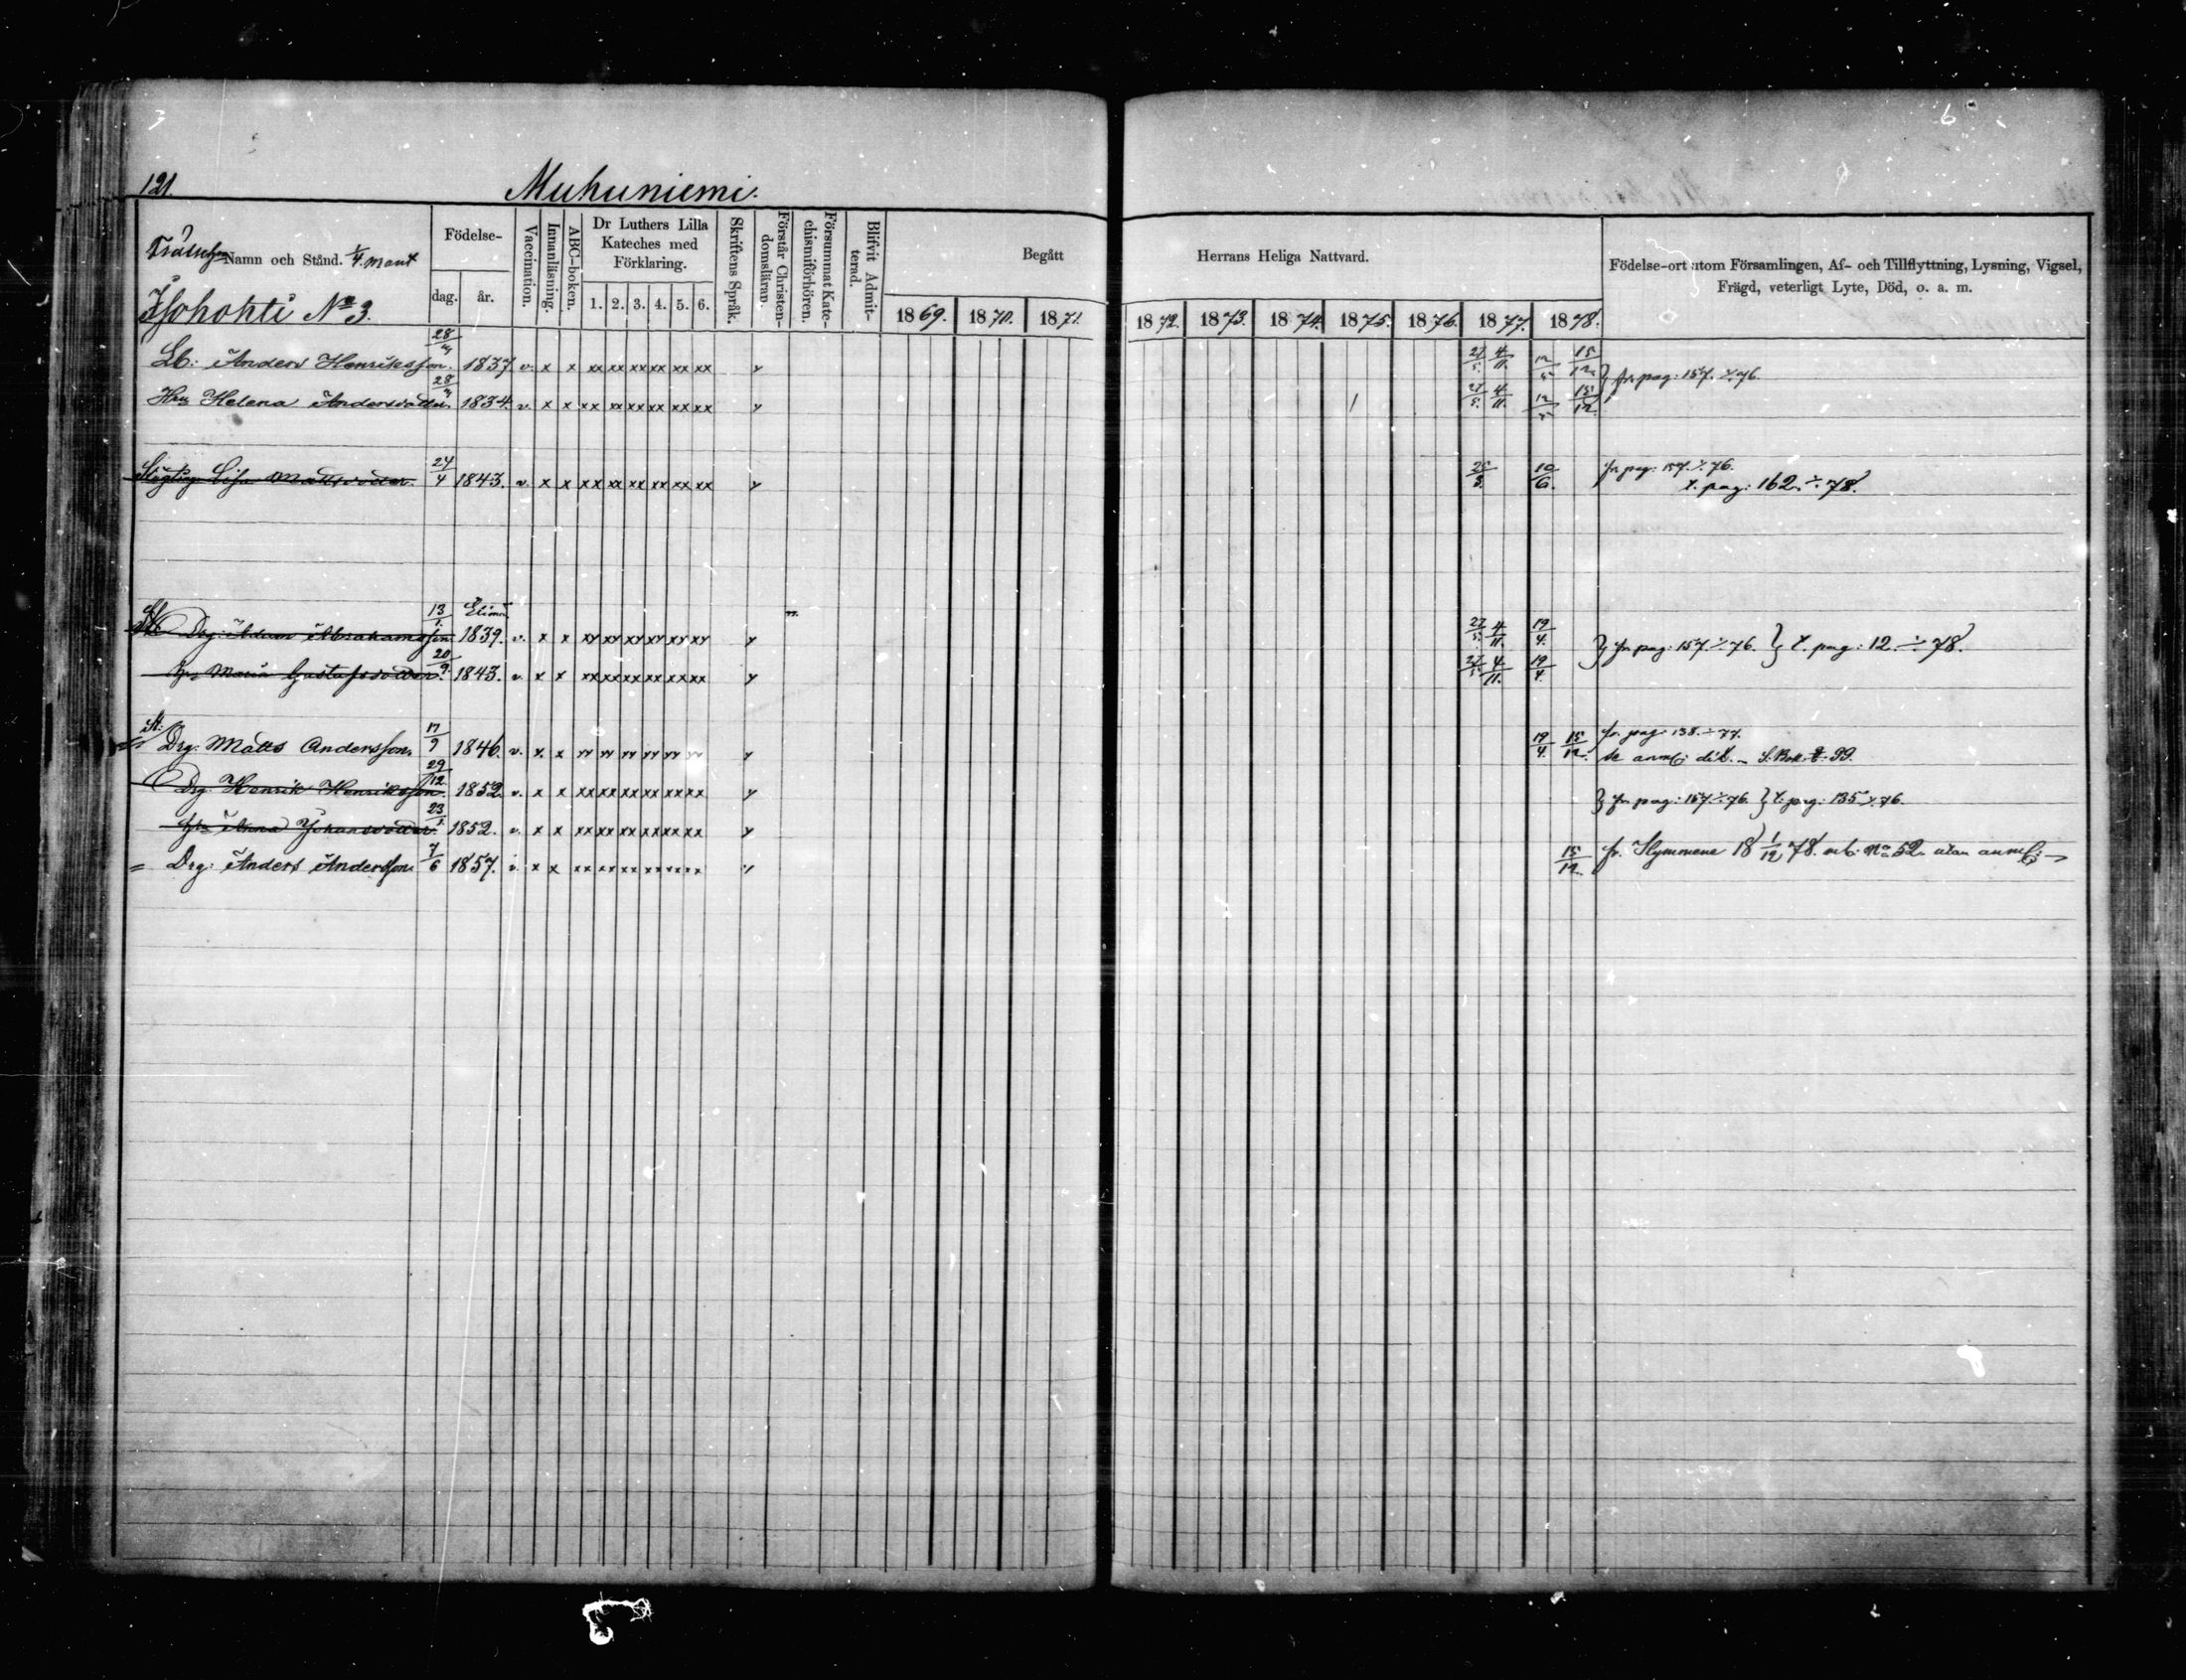 121.
Muhuniemi.
Namn och Stånd. 1/4 mant
Isohohti No 3.
Födelse-
dag. år.
Vaccination.
Innanläsning.
ABC-boken.
Dr Luthers Lilla Kateches med Förklaring.
1. 2. 3. 4. 5. 6.
Skriftens Språk.
Förstår Christen-domsläran.
Försummat Kate-chismiförhören.
Blifvit Admit-terad.
Begått
Herrans Heliga Nattvard.
1869. 1870. 1871. 1872. 1873. 1874. 1875. 1876. 1877. 1878.
Födelse-ort utom Församlingen, Af- och Tillflyttning, Lysning, Vigsel,
Frägd, veterligt Lyte, Död, o. a. m.
Lb: Anders Henriksson. 1837. v. x x xx xx xx xx xx xx y 27/5. 4/11. 12/5 15/12 } fr. pag: 157. ÷ 76.
Hu Helena Andersdotter. 1834. v. x x xx xx xx xx xx xx y 27/5. 4/11. 12/5 15/12.
Lisa Mattsdotter. 24/4 1843. v. x x xx xx xx xx xx xx y 10/6. fr pag: 157. ÷ 76.
t. pag: 162. ÷ 78.
Elimä
Drg: Adam Abrahamsson. 13/1. 1839. v. x x xx xx xx xx xx xx y 27/5. 4/11. 19/4. } fr pag: 157. ÷ 76. } t. pag: 12. ÷ 78.
Hu Maria Gustafsdotter. 20/9. 1843. v. x x xx xx xx xx xx xx y 27/5 4/11. 19/4.
St:
Drg: Matts Andersson. 17/9 1846. v. x x y 19/4. 15/12. fr. pag: 138. ÷ 77.
se anm: dit. - S. Bok: 99.
Drg. Henrik Henriksson. 29/12 1852. v. x x xx xx xx xx xx xx y } fr pag: 157. ÷ 76. } t. pag: 135 ÷ 76.
Hu Anna Johansdotter. 23/1. 1852. v. x x xx xx xx xx xx xx y
= Drg: Anders Andersson. 7/6 1857. v. x x xx xx xx xx xx xx y 15/12. fr. Kymmene 18 1/12 78. No 52 utan anm: